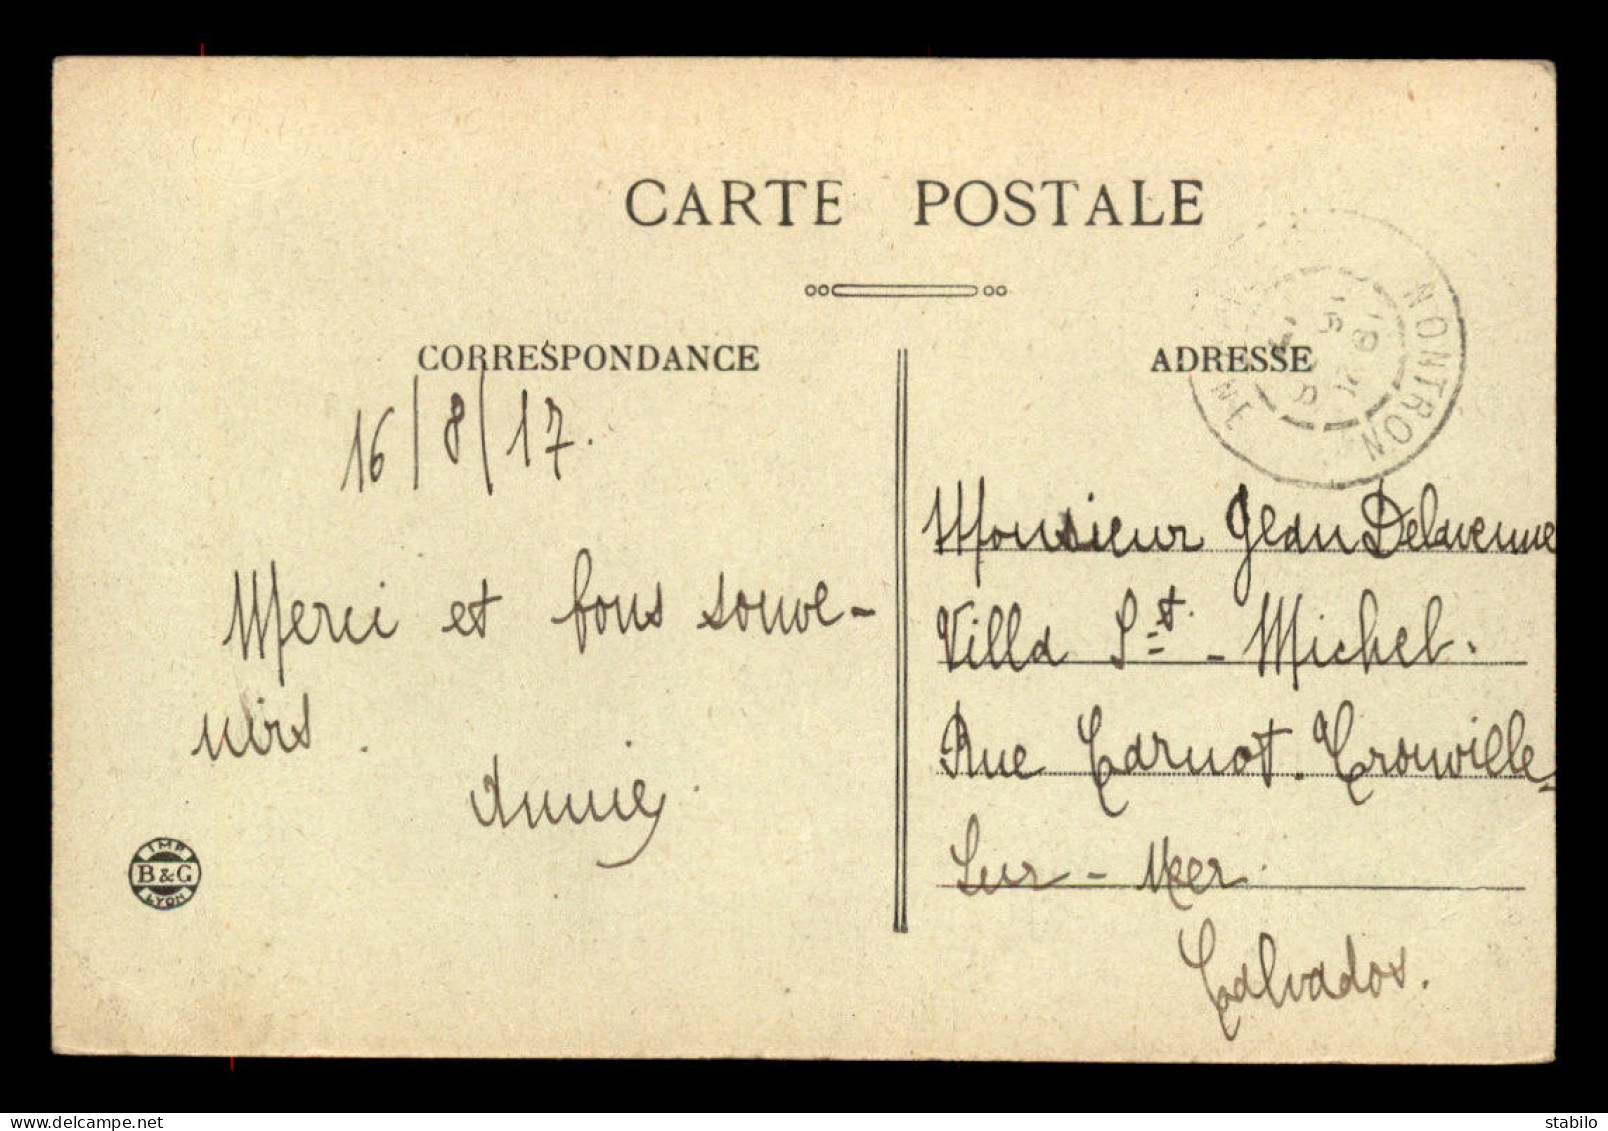 CARTE POSTALE
CORRESPONDANCE
ADRESSE
NONTRON
16/8/17.
Merci et bons souve-
nirs.
Annie
Monsieur Jean Delavenne
Villa St - Michel.
Rue Carnot. Trouville
Sur - Mer.
Calvados.
IMP
B & G
LYON
delcampe.net
stabilo